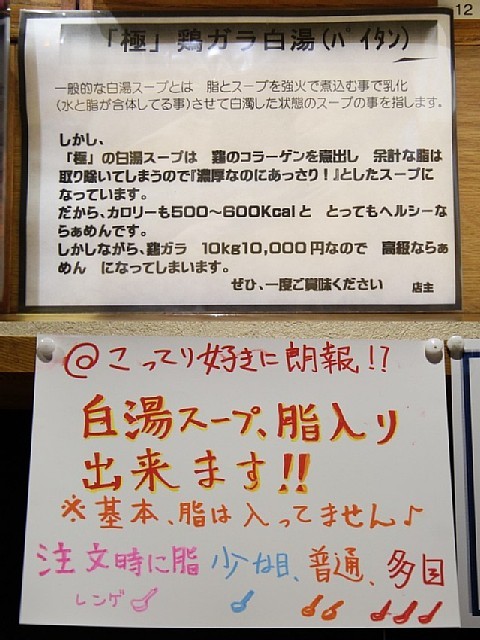 12
「極」鶏ガラ白湯(パイタン)
一般的な白湯スープとは　脂とスープを強火で煮込む事で乳化
(水と脂が合体してる事)させて白濁した状態のスープの事を指します。
しかし、
「極」の白湯スープは　鶏のコラーゲンを煮出し　余計な脂は
取り除いてしまうので『濃厚なのにあっさり！』としたスープに
なっています。
だから、カロリーも500〜600Kcalと　とってもヘルシーな
らぁめんです。
しかしながら、鶏ガラ　10kg10,000円なので　高級ならぁ
めん　になってしまいます。
ぜひ、一度ご賞味ください　店主
@こってり好きに朗報!?
白湯スープ、脂入り
出来ます!!
※基本、脂は入ってません♪
注文時に脂 少な目、普通、多目
レンゲ